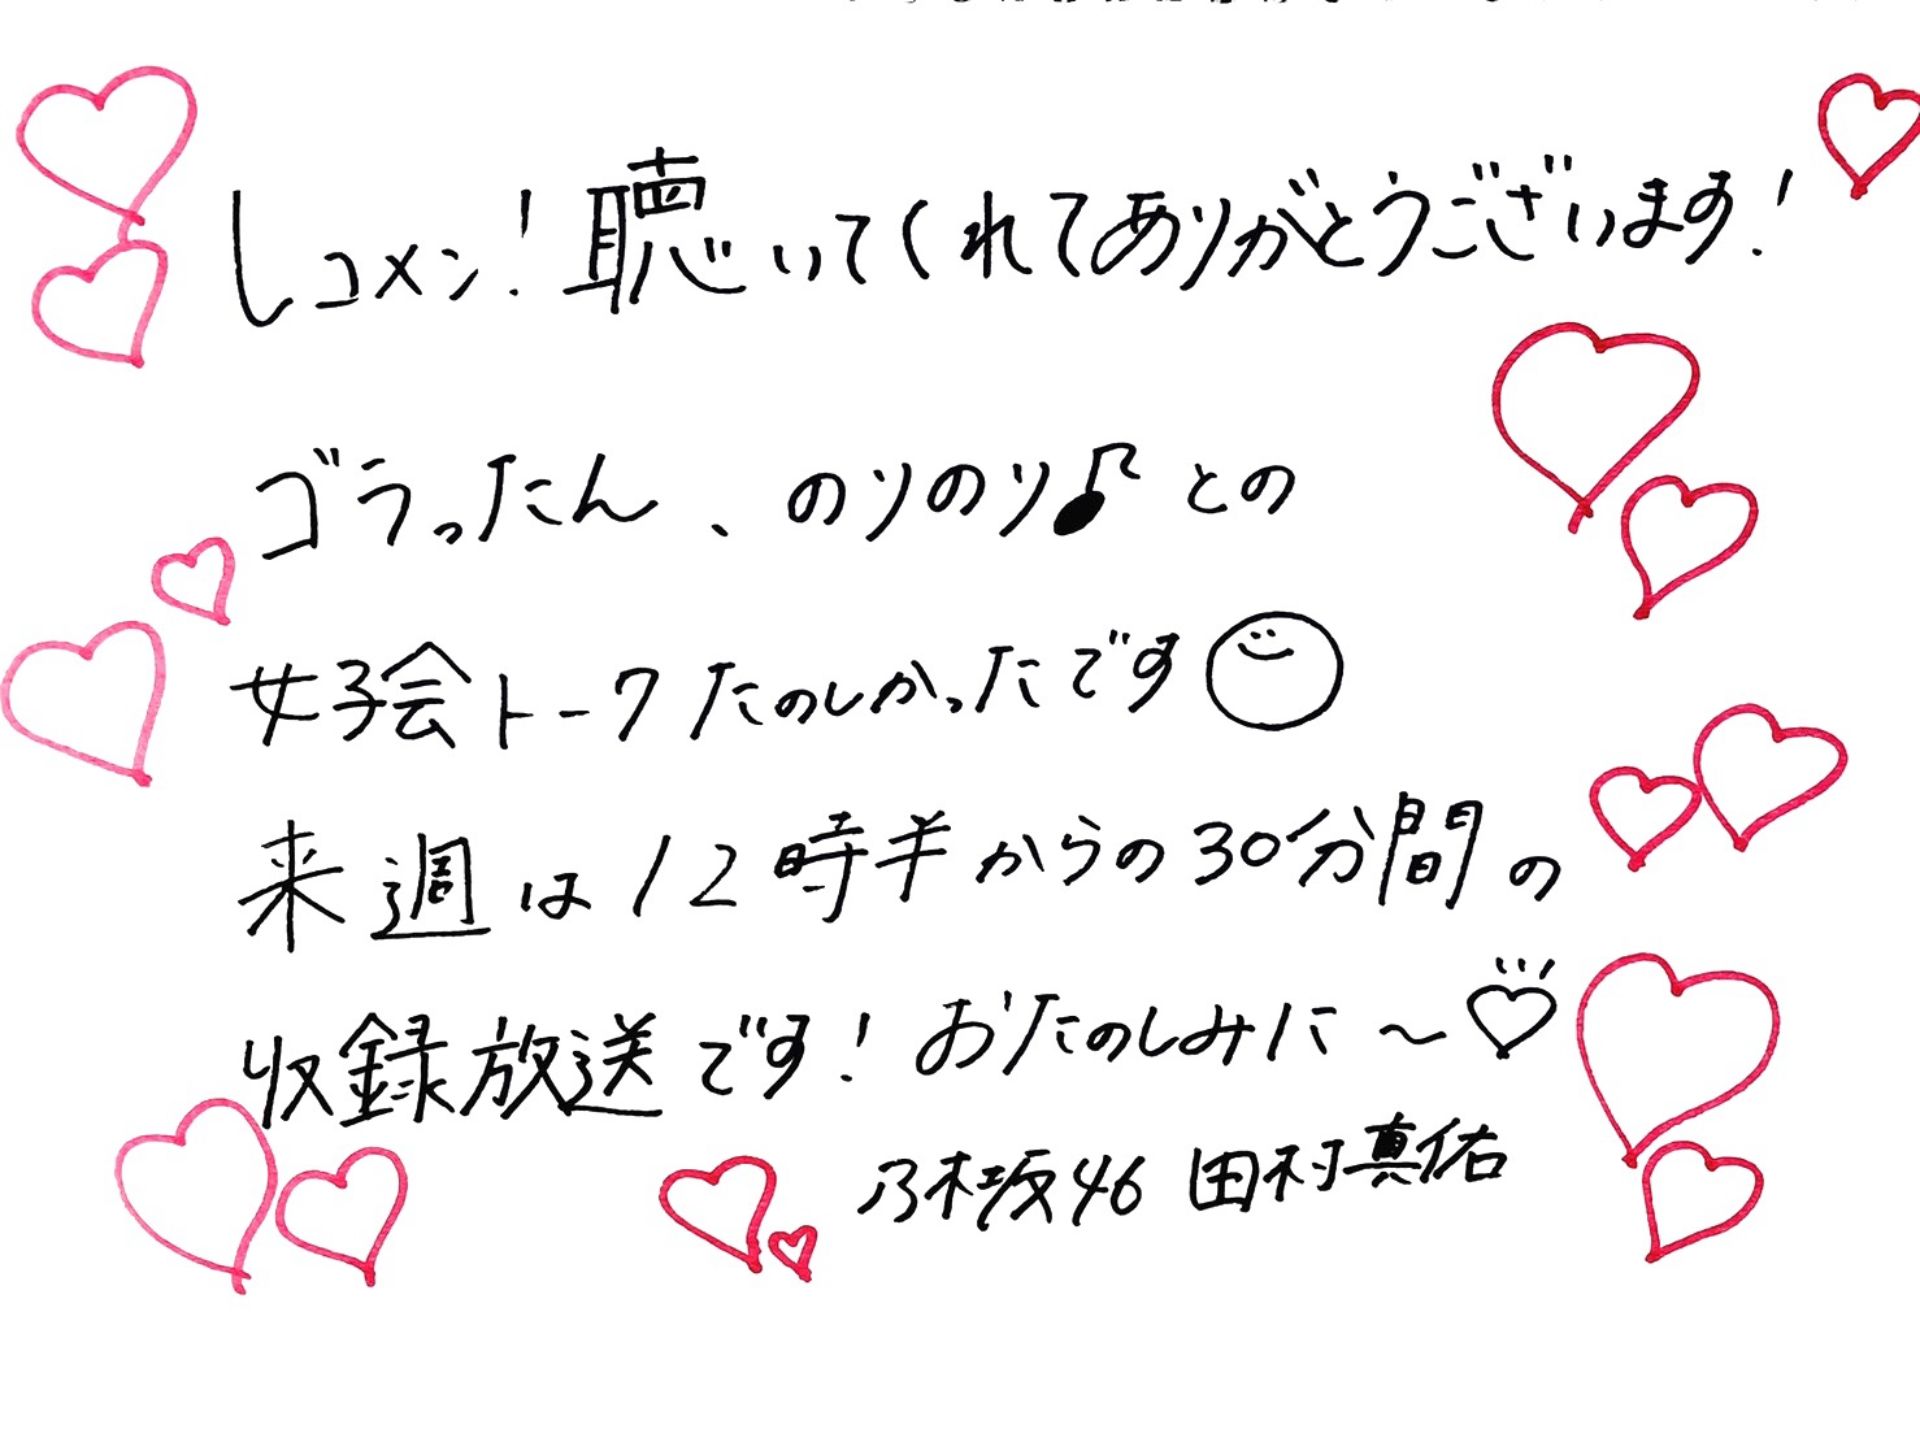 レコメン!聴いてくれてありがとうございます!
ゴラったん、のりのり♪との
女子会トークたのしかったです
来週は12時半からの30分間の
収録放送です!おたのしみに〜♡
乃木坂46 田村真佑